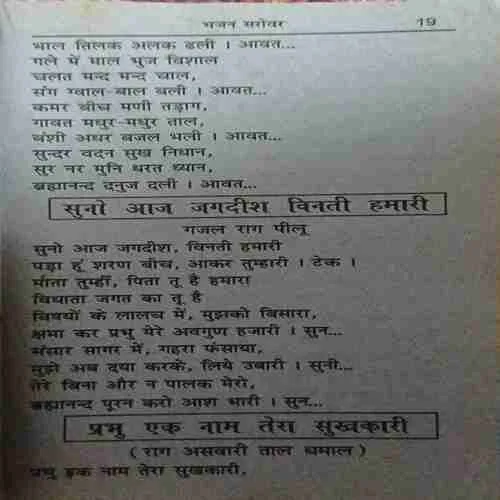 भजन सरोवर 19
भाल तिलक अलक ढली । आवत...
गले में माल भुज विशाल
चलत मन्द मन्द चाल,
संग ग्वाल-बाल बली । आवत...
कमर बीच मणी तड़ाग,
गावत मधुर-मधुर ताल,
बंशी अधर बजल भली । आवत...
सुन्दर वदन सुख निधान,
सुर नर मुनि धरत ध्यान,
ब्रह्मानन्द दनुज दली । आवत...
सुनो आज जगदीश विनती हमारी
गजल राग पीलू
सुनो आज जगदीश, विनती हमारी
पड़ा हूं शरण बीच, आकर तुम्हारी । टेक ।
माता तुम्हीं, पिता तू है हमारा
विधाता जगत का तू है
विषयों के लालच में, मुझको बिसारा,
क्षमा कर प्रभु मेरे अवगुण हजारी । सुन...
संसार सागर में, गहरा फंसाया,
मुझे अब दया करके, लिये उबारी । सुनी...
तेरे बिना और न पालक मेरो,
ब्रह्मानन्द पूरन करो आश भारी । सुन...
प्रभु एक नाम तेरा सुखकारी
( राग असवारी ताल धमाल )
प्रभु इक नाम तेरा सुखकारी,